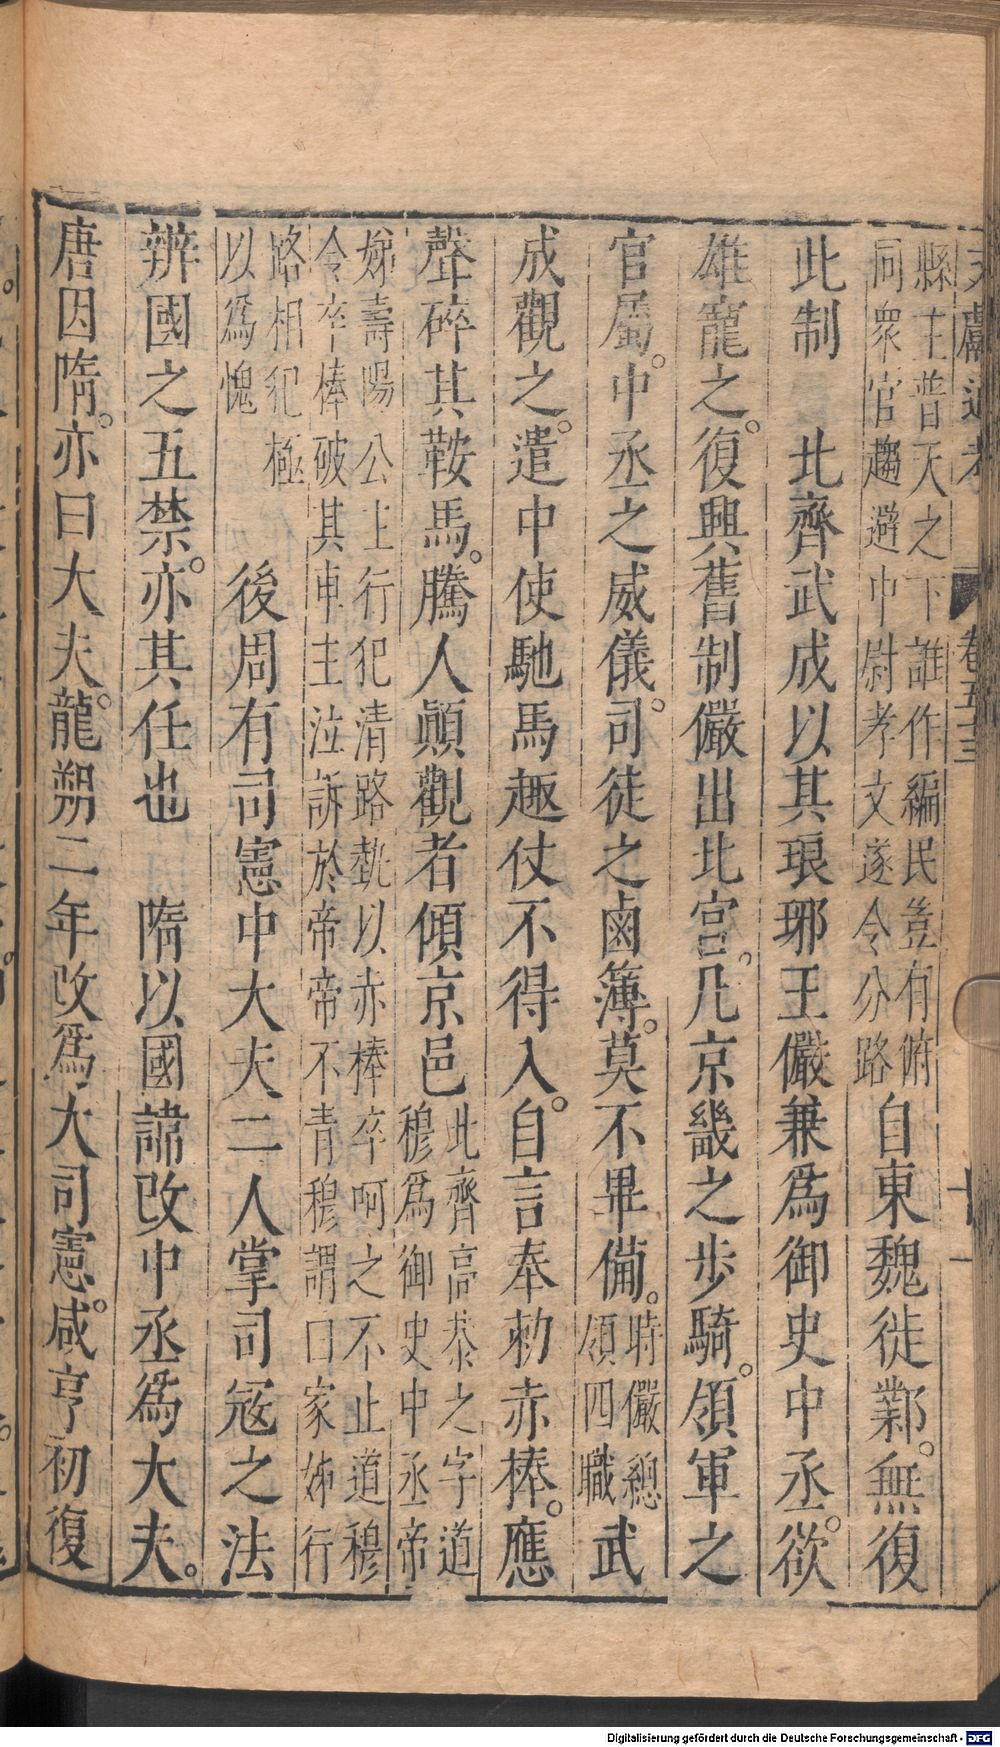 文獻通考 卷五十三 十一
縣主普天之下誰作編民豈有俯
同衆官趨避中尉孝文遂令分路
自東魏徙鄴。無復
此制 北齊武成以其琅邪王儼兼爲御史中丞。欲
雄寵之。復興舊制儼出北宮。凡京畿之步騎。領軍之
官屬。中丞之威儀。司徒之鹵簿。莫不畢備。
時儼總
領四職
武
成觀之。遣中使馳馬趣仗不得入。自言奉勑赤棒。應
聲碎其鞍馬。騰人顚觀者傾京邑
此齊高恭之字道
穆爲御史中丞帝
姊壽陽公主行犯清路執以赤棒卒呵之不止道穆
令卒棒破其車主泣訴於帝帝不青穆謂曰家姊行
路相犯極
以爲愧
後周有司憲中大夫二人掌司寇之法
辨國之五禁。亦其任也 隋以國諱改中丞爲大夫。
唐因隋。亦曰大夫。龍朔二年改爲大司憲。咸亨初復
Digitalisierung gefördert durch die Deutsche Forschungsgemeinschaft - DFG